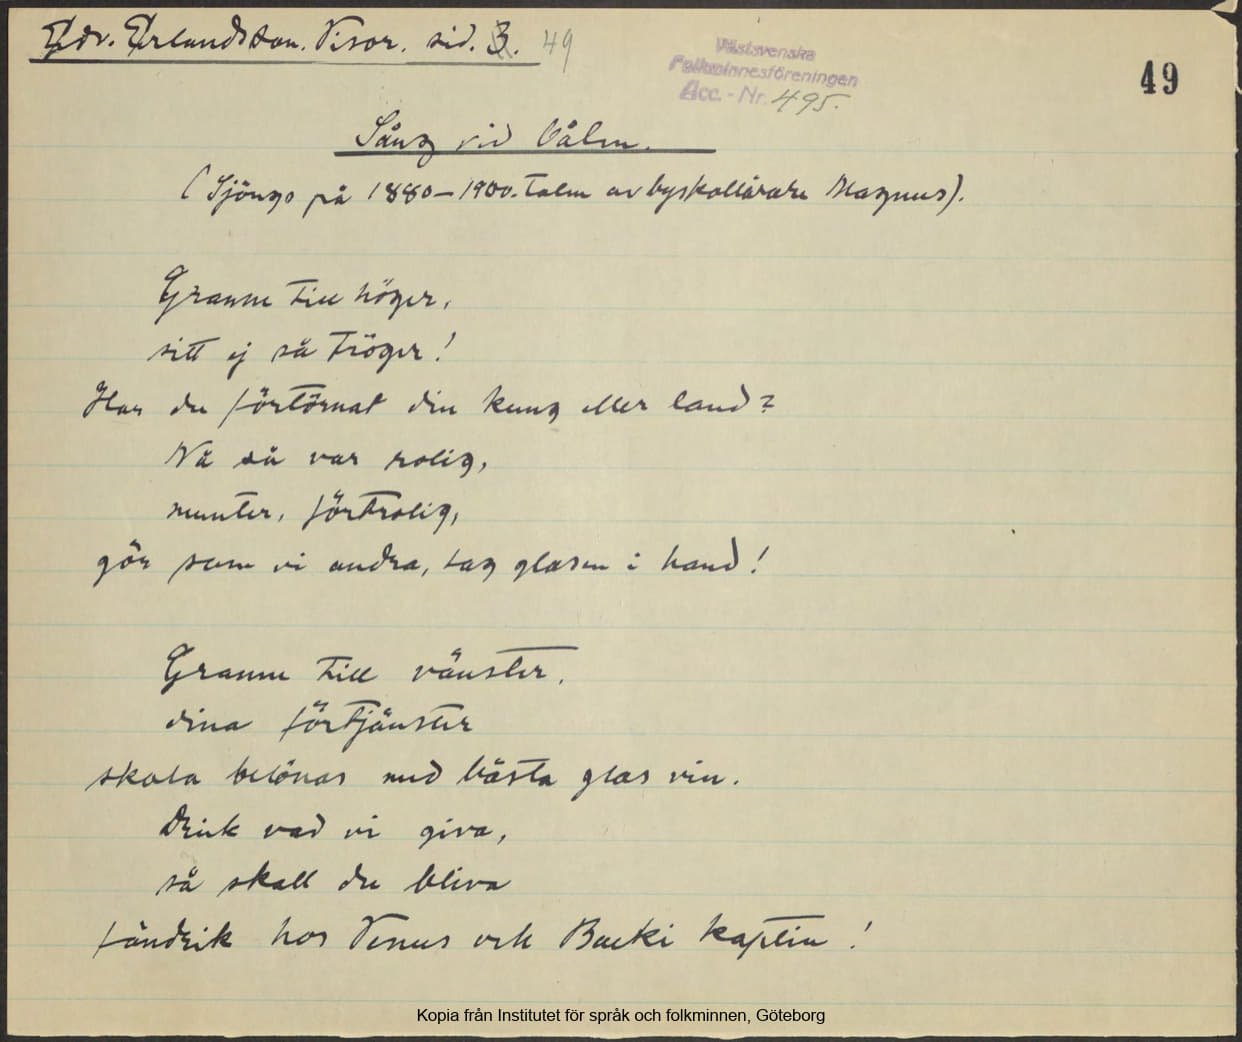 Edv. Erlandsson. Visor. sid. 3. 49
Västsvenska
Folkminnesföreningen
Acc. - Nr. 495.
49
Sång vid bålen.
(Sjöngs på 1880–1900. talen av byskollärare Magnus).
Granne till höger,
sitt ej så tröger!
Har du förtörnat din kung eller land?
Nå så var rolig,
munter, förtrolig,
gör som vi andra, tag glasen i hand!
Granne till vänster,
dina förtjänster
skola belönas med bästa glas vin.
Drick vad vi giva,
så skall du bliva
fändrik hos Venus och Backi kaptin!
Kopia från Institutet för språk och folkminnen, Göteborg